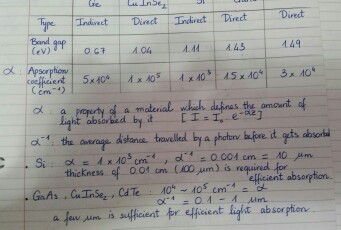 Ge CuInSe₂ Si
Type Indirect Direct Indirect Direct Direct
Band gap (eV) 0.67 1.04 1.11 1.43 1.49
α : Apsorption coefficient (cm⁻¹) 5x10⁴ 1 x 10⁵ 1 x 10³ 1.5 x 10⁴ 3 x 10⁴
α : a property of a material which defines the amount of
light absorbed by it [ I = I₀ e^-αz ]
α⁻¹ : the average distance travelled by a photon before it gets absorbed
• Si : α = 1 x 10³ cm⁻¹ , α⁻¹ = 0.001 cm = 10 µm
thickness of 0.01 cm (100 µm) is required for
efficient absorption
• GaAs , CuInSe₂ , CdTe : 10⁴ ~ 10⁵ cm⁻¹ = α
α⁻¹ = 0.1 - 1 µm
a few µm is sufficient for efficient light absorption